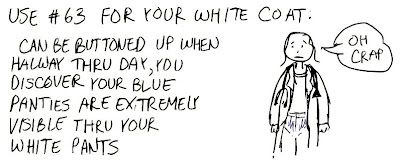 USE #63 FOR YOUR WHITE COAT:
CAN BE BUTTONED UP WHEN
HALWAY THRU DAY, YOU
DISCOVER YOUR BLUE
PANTIES ARE EXTREMELY
VISIBLE THRU YOUR
WHITE PANTS
OH
CRAP